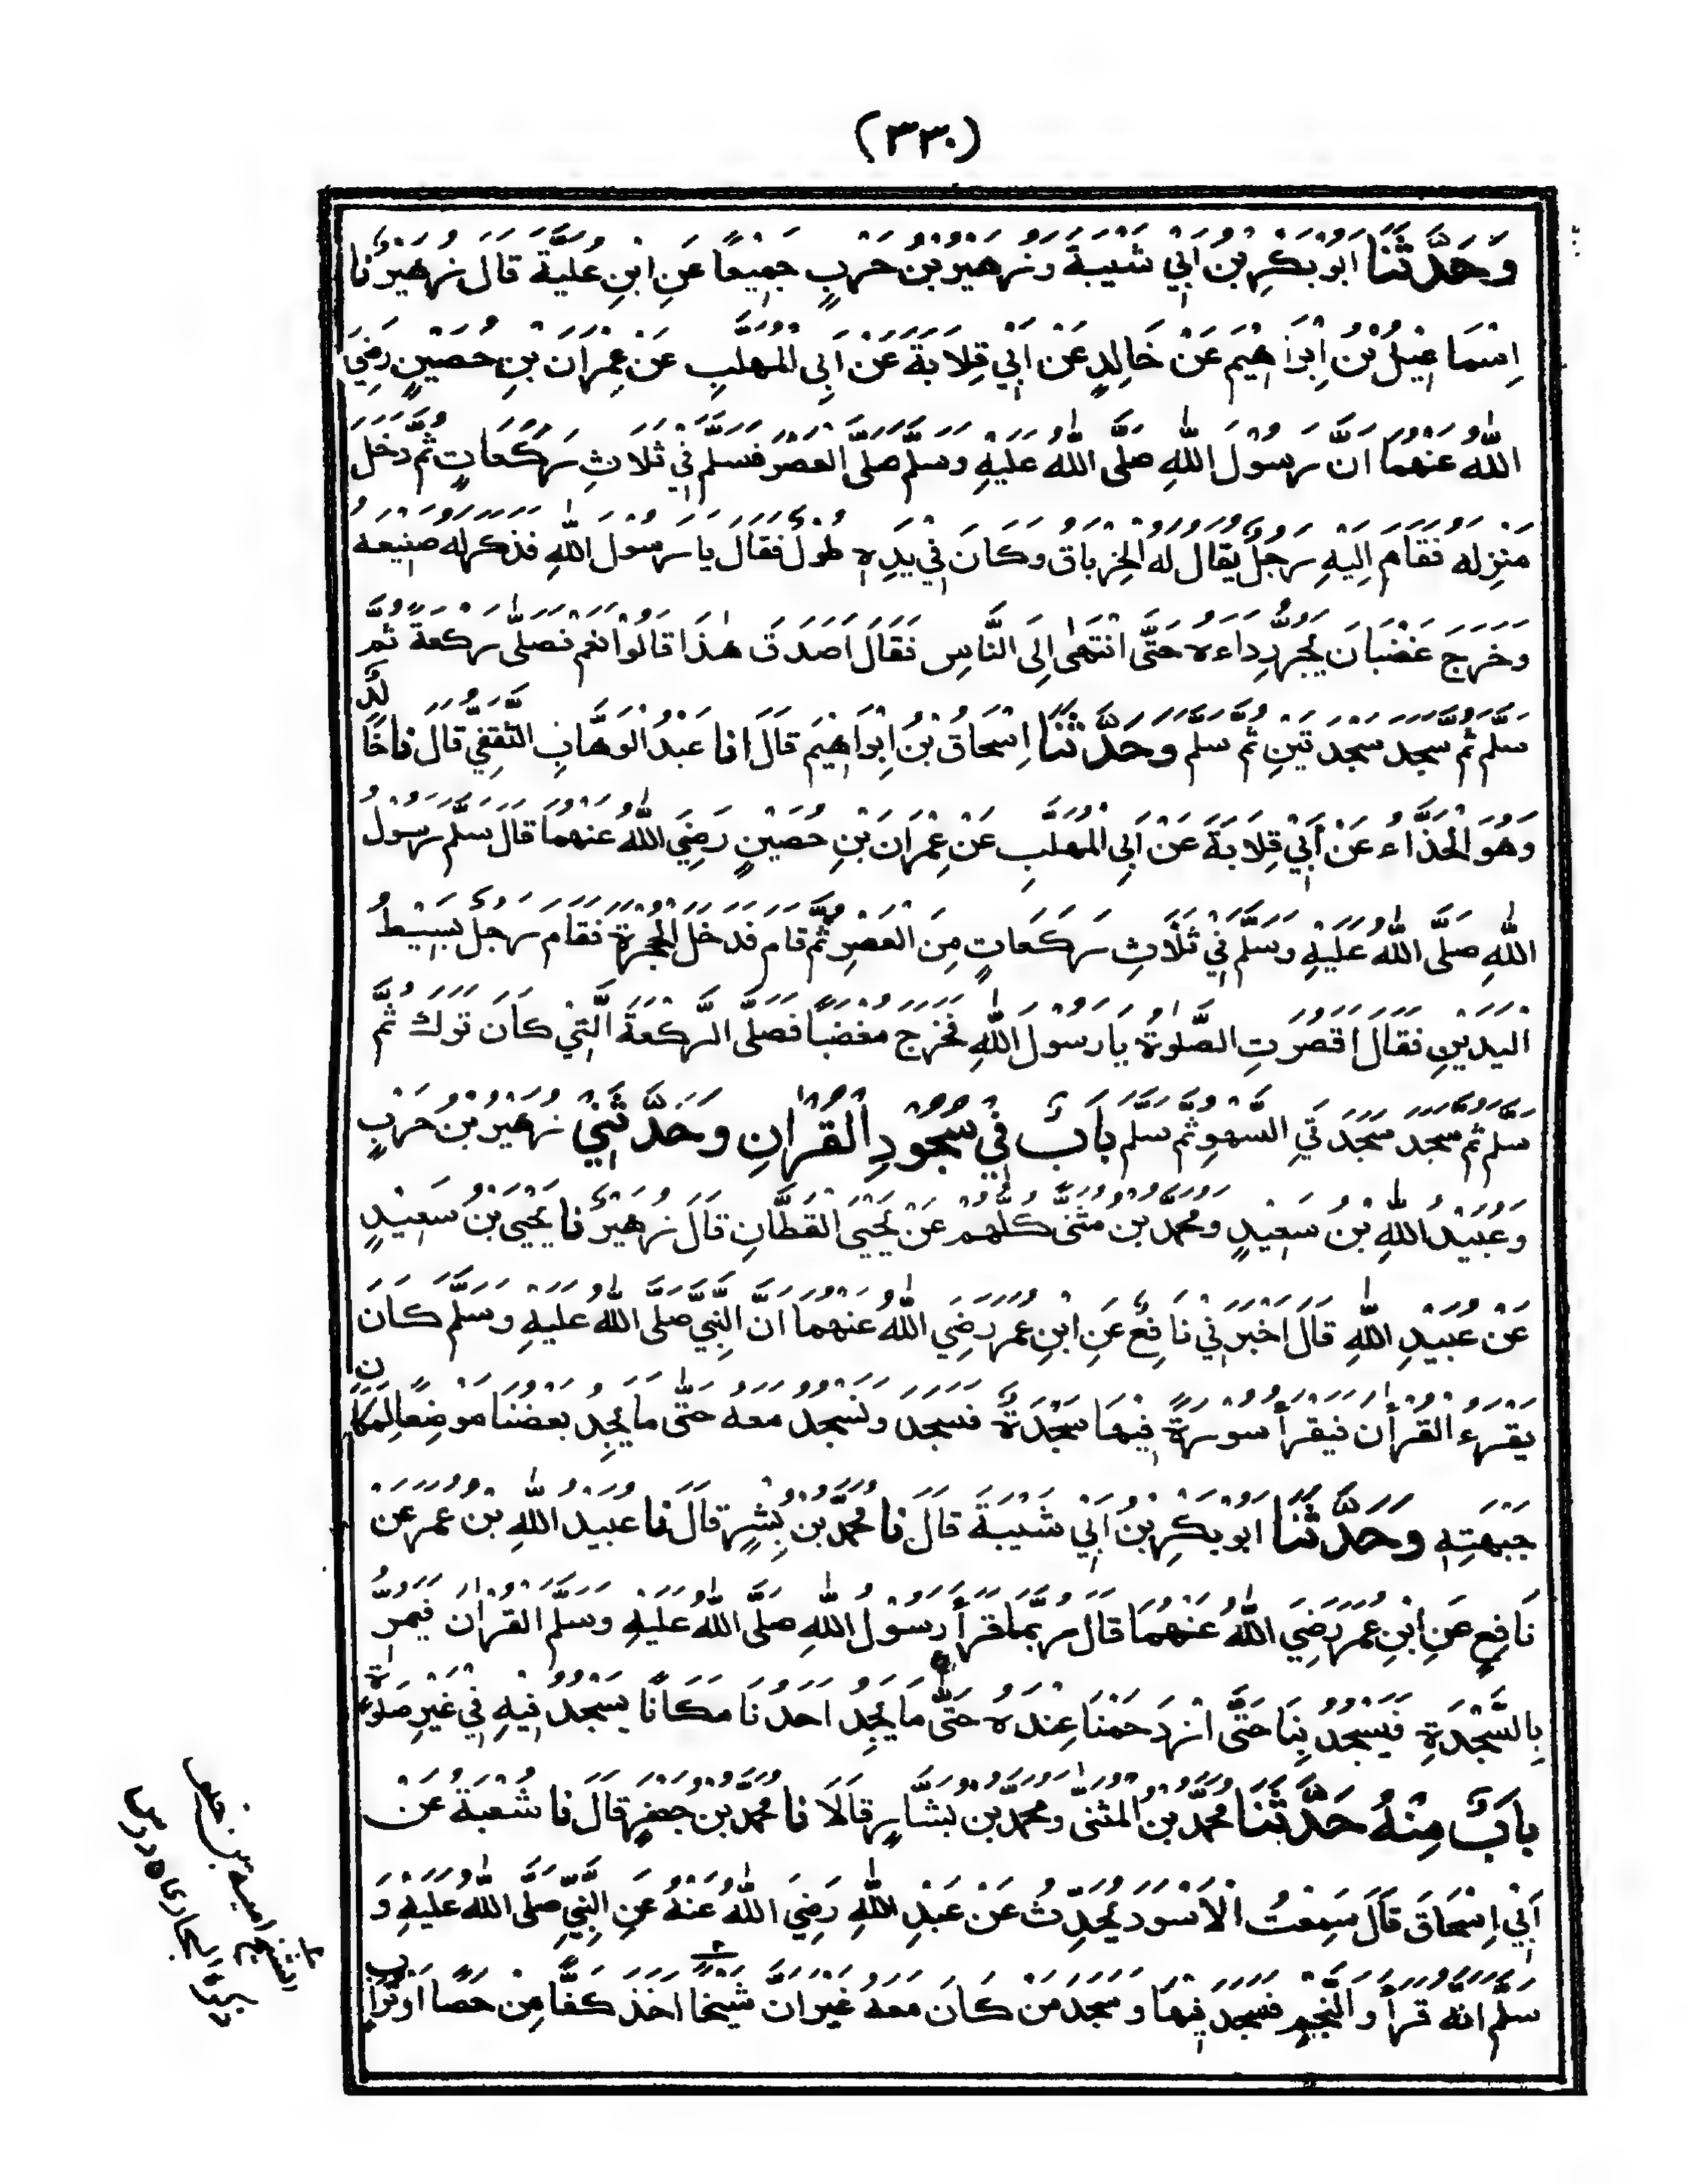 (٣٣٠)
وَحَدَّثَنَا اَبُوْ بَكْرِ بْنُ اَبِيْ شَيْبَةَ وَزُهَيْرُ بْنُ حَرْبٍ جَمِيْعًا عَنِ ابْنِ عُلَيَّةَ قَالَ زُهَيْرٌ نَا
اِسْمَاعِيْلُ بْنُ اِبْرَاهِيْمَ عَنْ خَالِدٍ عَنْ اَبِيْ قِلَابَةَ عَنْ اَبِي الْمُهَلَّبِ عَنْ عِمْرَانَ بْنِ حُصَيْنٍ رَضِيَ
اللّٰهُ عَنْهُمَا اَنَّ رَسُوْلَ اللّٰهِ صَلَّى اللّٰهُ عَلَيْهِ وَسَلَّمَ صَلَّى الْعَصْرَ فَسَلَّمَ فِيْ ثَلَاثِ رَكَعَاتٍ ثُمَّ دَخَلَ
مَنْزِلَهُ فَقَامَ اِلَيْهِ رَجُلٌ يُقَالُ لَهُ الْخِرْبَاقُ وَكَانَ فِيْ يَدِهٖ طُوْلٌ فَقَالَ يَا رَسُوْلَ اللّٰهِ فَذَكَرَ لَهُ صَنِيْعَهُ
وَخَرَجَ غَضْبَانَ يَجُرُّ رِدَاءَهُ حَتَّى انْتَهٰى اِلَى النَّاسِ فَقَالَ اَصَدَقَ هٰذَا قَالُوْا نَعَمْ فَصَلّٰى رَكْعَةً ثُمَّ
سَلَّمَ ثُمَّ سَجَدَ سَجْدَتَيْنِ ثُمَّ سَلَّمَ وَحَدَّثَنَا اِسْحَاقُ بْنُ اِبْرَاهِيْمَ قَالَ اَنَا عَبْدُ الْوَهَّابِ الثَّقَفِيُّ قَالَ نَا خَالِدٌ
وَهُوَ الْحَذَّاءُ عَنْ اَبِيْ قِلَابَةَ عَنْ اَبِي الْمُهَلَّبِ عَنْ عِمْرَانَ بْنِ حُصَيْنٍ رَضِيَ اللّٰهُ عَنْهُمَا قَالَ سَلَّمَ رَسُوْلُ
اللّٰهِ صَلَّى اللّٰهُ عَلَيْهِ وَسَلَّمَ فِيْ ثَلَاثِ رَكَعَاتٍ مِنَ الْعَصْرِ ثُمَّ قَامَ فَدَخَلَ الْحُجْرَةَ فَقَامَ رَجُلٌ بَسِيْطُ
الْيَدَيْنِ فَقَالَ اَقُصِرَتِ الصَّلٰوةُ يَا رَسُوْلَ اللّٰهِ فَخَرَجَ مُغْضَبًا فَصَلَّى الرَّكْعَةَ الَّتِيْ كَانَ تَرَكَ ثُمَّ
سَلَّمَ ثُمَّ سَجَدَ سَجْدَتَيِ السَّهْوِ ثُمَّ سَلَّمَ بَابٌ فِيْ سُجُوْدِ الْقُرْاٰنِ وَحَدَّثَنِيْ زُهَيْرُ بْنُ حَرْبٍ
وَعُبَيْدُ اللّٰهِ بْنُ سَعِيْدٍ وَمُحَمَّدُ بْنُ مُثَنّٰى كُلُّهُمْ عَنْ يَحْيَى الْقَطَّانِ قَالَ زُهَيْرٌ نَا يَحْيَى بْنُ سَعِيْدٍ
عَنْ عُبَيْدِ اللّٰهِ قَالَ اَخْبَرَنِيْ نَافِعٌ عَنِ ابْنِ عُمَرَ رَضِيَ اللّٰهُ عَنْهُمَا اَنَّ النَّبِيَّ صَلَّى اللّٰهُ عَلَيْهِ وَسَلَّمَ كَانَ
يَقْرَءُ الْقُرْاٰنَ فَيَقْرَأُ سُوْرَةً فِيْهَا سَجْدَةٌ فَسَجَدَ وَنَسْجُدُ مَعَهُ حَتّٰى مَا يَجِدُ بَعْضُنَا مَوْضِعًا لِمَكَانِ
جَبْهَتِهٖ وَحَدَّثَنَا اَبُوْ بَكْرِ بْنُ اَبِيْ شَيْبَةَ قَالَ نَا مُحَمَّدُ بْنُ بِشْرٍ قَالَ نَا عُبَيْدُ اللّٰهِ بْنُ عُمَرَ عَنْ
نَافِعٍ عَنِ ابْنِ عُمَرَ رَضِيَ اللّٰهُ عَنْهُمَا قَالَ رُبَّمَا قَرَأَ رَسُوْلُ اللّٰهِ صَلَّى اللّٰهُ عَلَيْهِ وَسَلَّمَ الْقُرْاٰنَ فَيَمُرُّ
بِالسَّجْدَةِ فَيَسْجُدُ بِنَا حَتَّى ازْدَحَمْنَا عِنْدَهُ حَتّٰى مَا يَجِدُ اَحَدُنَا مَكَانًا يَسْجُدُ فِيْهِ فِيْ غَيْرِ صَلٰوةٍ
بَابٌ مِنْهُ حَدَّثَنَا مُحَمَّدُ بْنُ الْمُثَنّٰى وَمُحَمَّدُ بْنُ بَشَّارٍ قَالَا نَا مُحَمَّدُ بْنُ جَعْفَرٍ قَالَ نَا شُعْبَةُ عَنْ
اَبِيْ اِسْحَاقَ قَالَ سَمِعْتُ الْاَسْوَدَ يُحَدِّثُ عَنْ عَبْدِ اللّٰهِ رَضِيَ اللّٰهُ عَنْهُ عَنِ النَّبِيِّ صَلَّى اللّٰهُ عَلَيْهِ وَ
سَلَّمَ اَنَّهُ قَرَأَ وَالنَّجْمِ فَسَجَدَ فِيْهَا وَسَجَدَ مَنْ كَانَ مَعَهُ غَيْرَ اَنَّ شَيْخًا٢ اَخَذَ كَفًّا مِنْ حَصًا اَوْ تُرَابٍ
٢ الشيخ امية بن خلف
ذكره البخاري